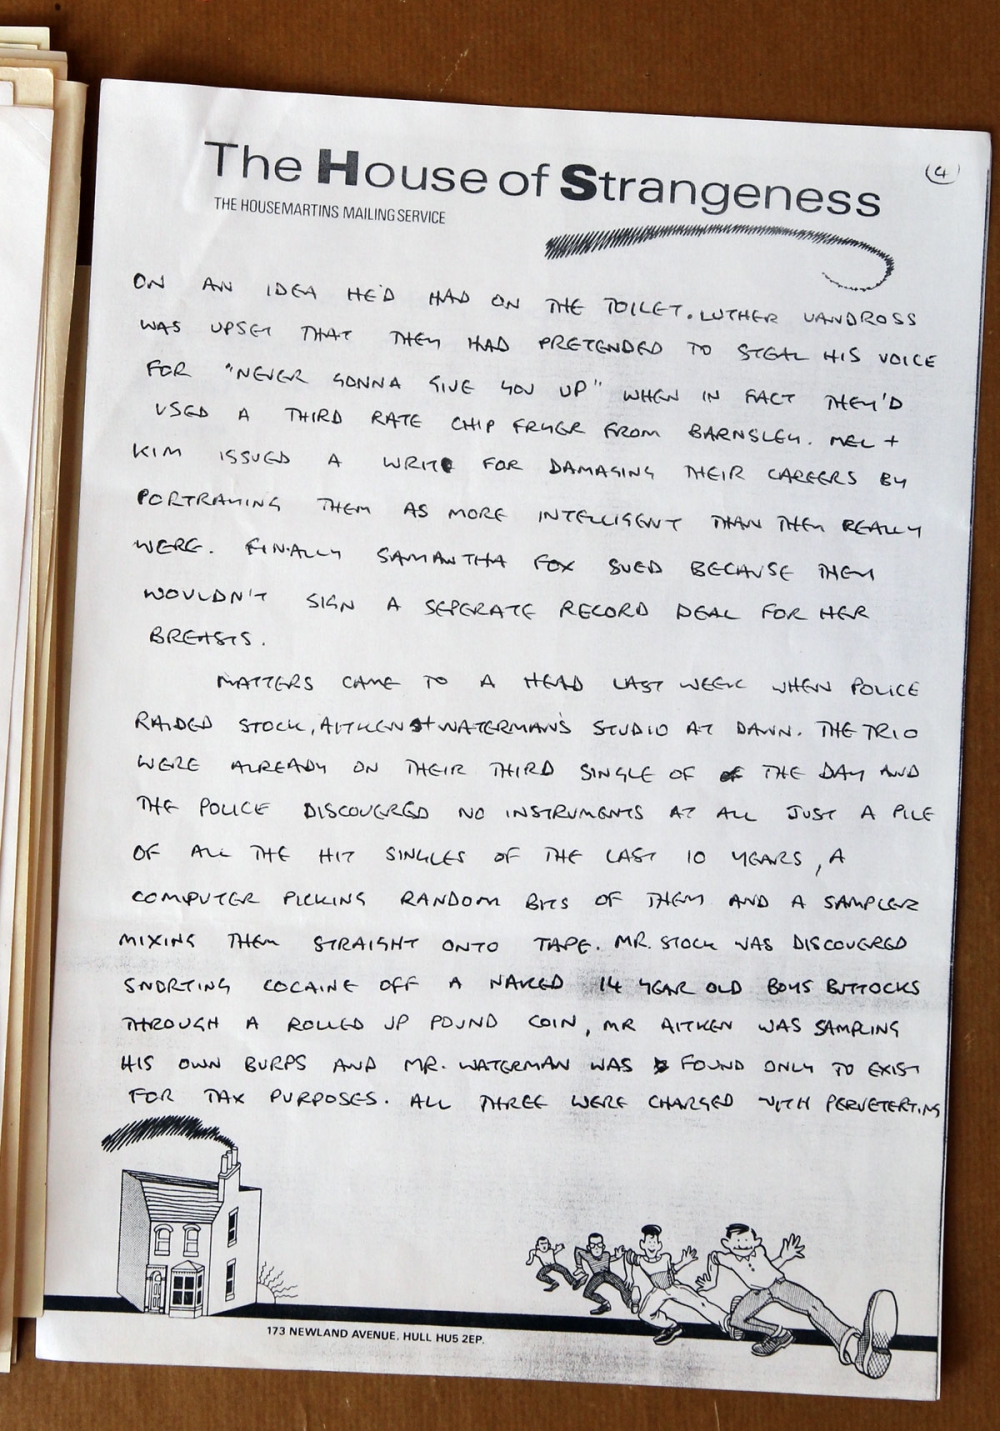 The House of Strangeness
(4)
THE HOUSEMARTINS MAILING SERVICE
ON AN IDEA HE'D HAD ON THE TOILET. LUTHER VANDROSS
WAS UPSET THAT THEY HAD PRETENDED TO STEAL HIS VOICE
FOR "NEVER GONNA GIVE YOU UP" WHEN IN FACT THEY'D
USED A THIRD RATE CHIP FRYER FROM BARNSLEY. MEL +
KIM ISSUED A WRIT FOR DAMAGING THEIR CAREERS BY
PORTRAYING THEM AS MORE INTELLIGENT THAN THEY REALLY
WERE. FINALLY SAMANTHA FOX SUED BECAUSE THEY
WOULDN'T SIGN A SEPERATE RECORD DEAL FOR HER
BREASTS.
MATTERS CAME TO A HEAD LAST WEEK WHEN POLICE
RAIDED STOCK, AITKEN + WATERMAN'S STUDIO AT DAWN. THE TRIO
WERE ALREADY ON THEIR THIRD SINGLE OF THE DAY AND
THE POLICE DISCOVERED NO INSTRUMENTS AT ALL JUST A PILE
OF ALL THE HIT SINGLES OF THE LAST 10 YEARS, A
COMPUTER PICKING RANDOM BITS OF THEM AND A SAMPLER
MIXING THEM STRAIGHT ONTO TAPE. MR. STOCK WAS DISCOVERED
SNORTING COCAINE OFF A NAKED 14 YEAR OLD BOYS BUTTOCKS
THROUGH A ROLLED UP POUND COIN, MR AITKEN WAS SAMPLING
HIS OWN BURPS AND MR. WATERMAN WAS FOUND ONLY TO EXIST
FOR TAX PURPOSES. ALL THREE WERE CHARGED WITH PERVETERTING
173 NEWLAND AVENUE, HULL HU5 2EP.